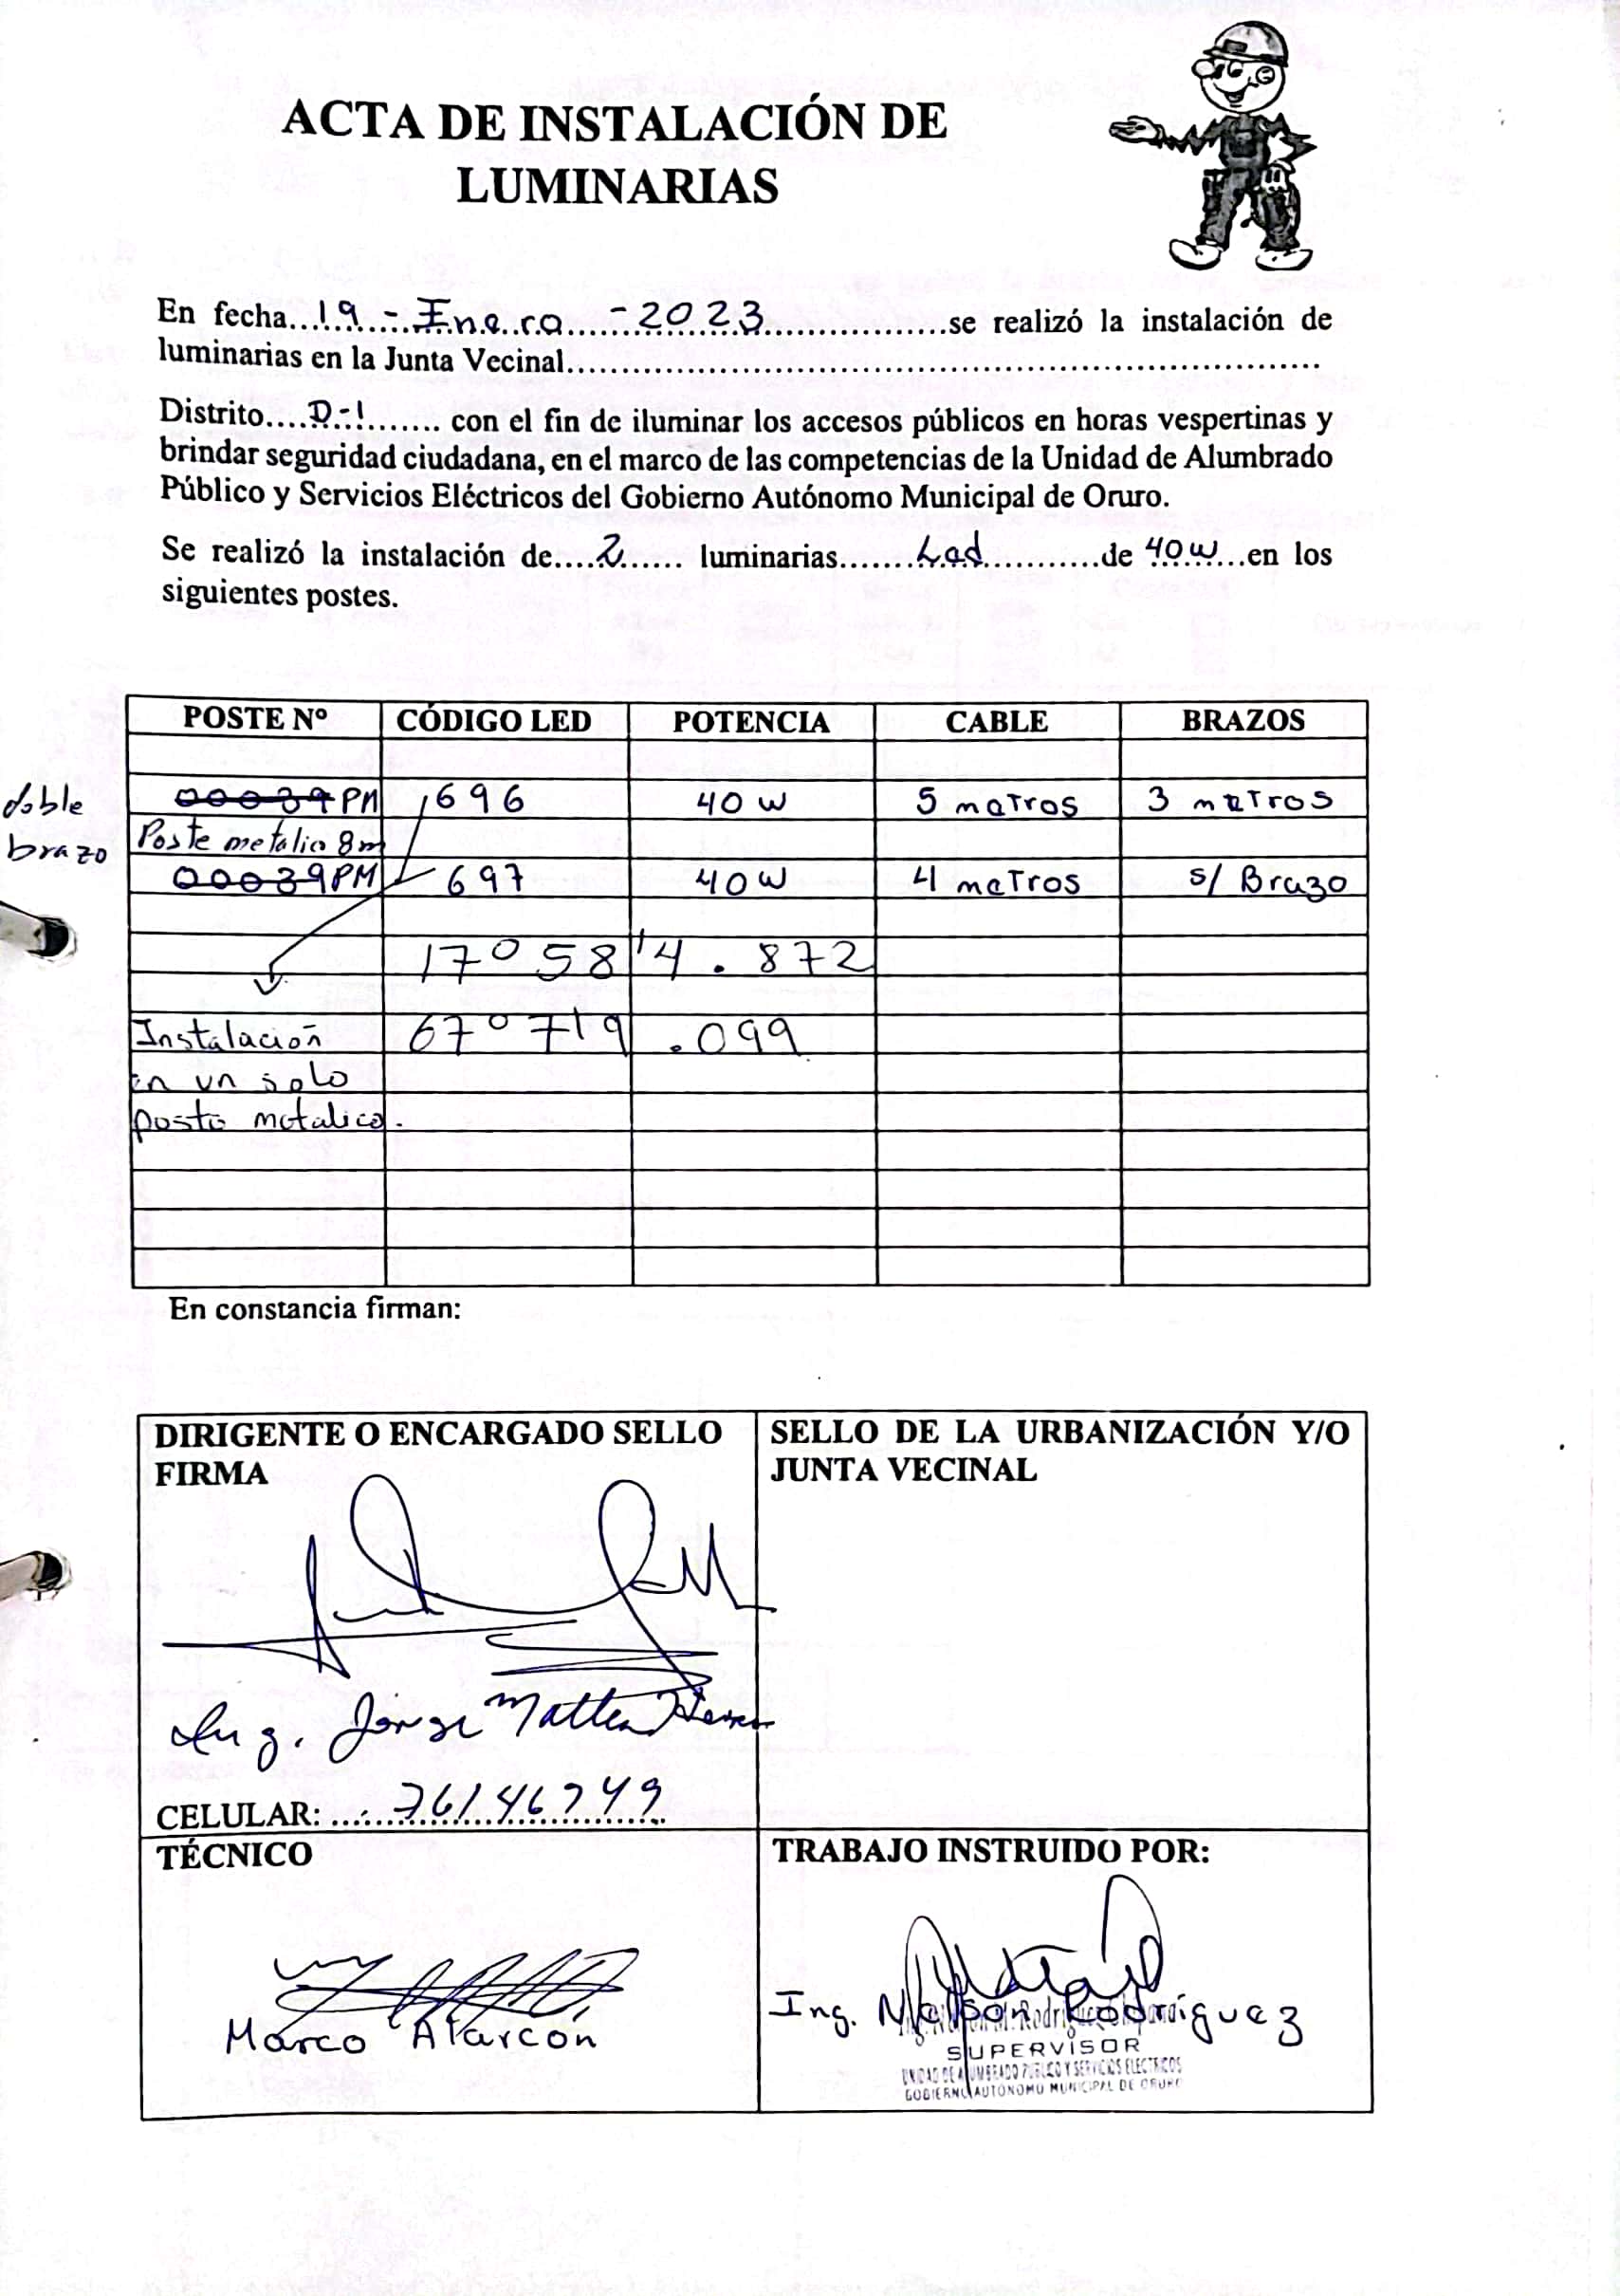 ACTA DE INSTALACIÓN DE
LUMINARIAS
En fecha...19 - Enero - 2023...se realizó la instalación de
luminarias en la Junta Vecinal...
Distrito....D-1....... con el fin de iluminar los accesos públicos en horas vespertinas y
brindar seguridad ciudadana, en el marco de las competencias de la Unidad de Alumbrado
Público y Servicios Eléctricos del Gobierno Autónomo Municipal de Oruro.
Se realizó la instalación de....2...... luminarias.......Led...........de 40W...en los
siguientes postes.
POSTE Nº CÓDIGO LED POTENCIA CABLE BRAZOS
doble 00039PM 696 40W 5 metros 3 metros
brazo Poste metalico 8m
00039PM 697 40W 4 metros s/ Brazo
17° 58' 4.872
Instalación 67° 7' 19.099
en un solo
poste metalico.
En constancia firman:
DIRIGENTE O ENCARGADO SELLO
FIRMA
SELLO DE LA URBANIZACIÓN Y/O
JUNTA VECINAL
Ing. Jorge
CELULAR: 76146749
TÉCNICO
Marco Alarcón
TRABAJO INSTRUIDO POR:
Ing. Nelson Rodríguez
SUPERVISOR
UNIDAD DE ALUMBRADO PÚBLICO Y SERVICIOS ELECTRICOS
GOBIERNO AUTONOMO MUNICIPAL DE ORURO